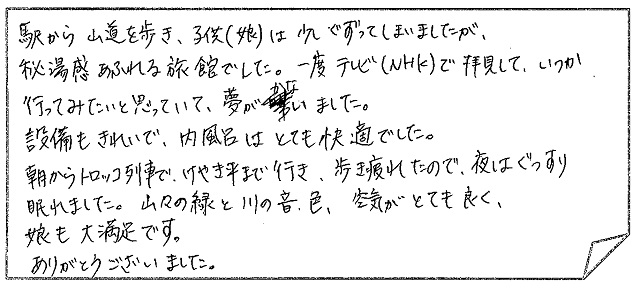 駅から山道を歩き、子供(娘)は少しぐずってしまいましたが、
秘湯感あふれる旅館でした。一度テレビ(NHK)で拝見して、いつか
行ってみたいと思っていて、夢がかないました。
設備もきれいで、内風呂はとても快適でした。
朝からトロッコ列車で、けやき平まで行き、歩き疲れたので、夜はぐっすり
眠れました。山々の緑と川の音、色、空気がとても良く、
娘も大満足です。
ありがとうございました。